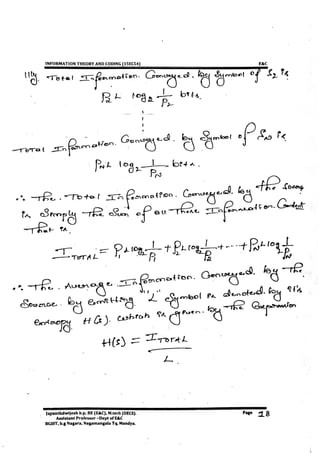 INFORMATION THEORY AND CODING (15EC54) E&C
IIIly Total Information Conveyed by Symbol of S2 is
P2 L log2 1/P2 bits.
Total Information Conveyed by Symbol of SN is
PN L log2 1/PN bits.
∴ The Total Information Conveyed by the Source
is Simply The Sum of all There Information Content
That is.
ITOTAL = P1 L log 1/P1 + P2 L log 1/P2 + --- + PN L log 1/PN
∴ The Average Information Conveyed by The
Source by emitting 'L' Symbol is denoted by its
entropy H(s). which is given by The Expression
H(s) = ITOTAL / L.
Jayanthdwijesh h.p. BE (E&C), M.tech (DECS). Page 18
Assistant Professor –Dept of E&C
BGSIT, b.g Nagara, Nagamangala Tq, Mandya.